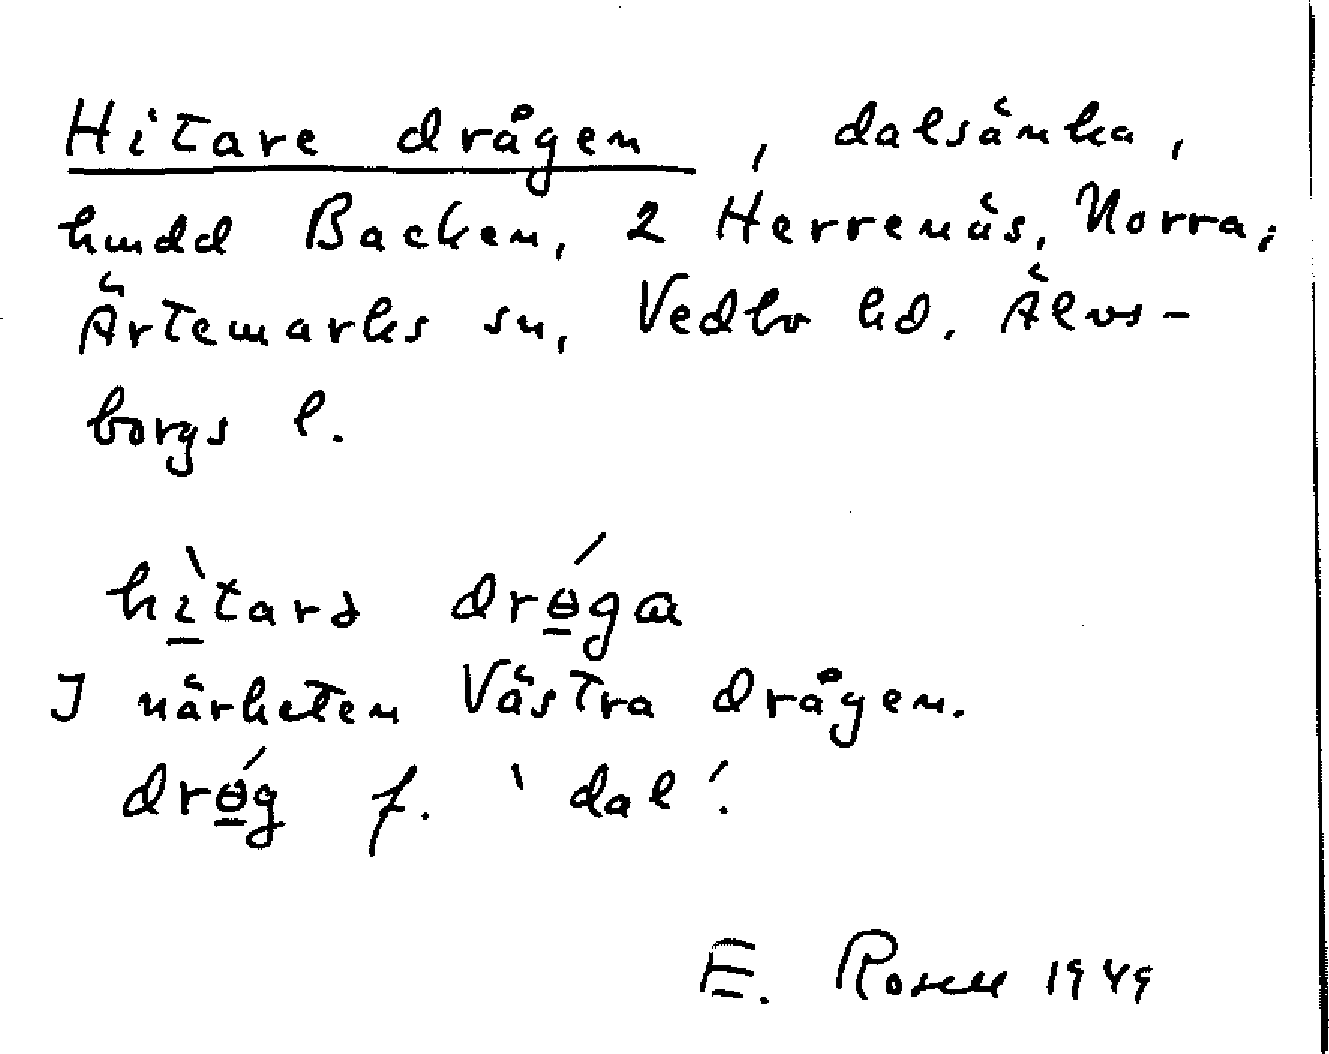 Hitare drågen, dalsänka,
hmdd Backen, 2 Herrenäs, Norra,
Ärtemarks sn, Vedbo hd. Älvs-
borgs l.
hìtarə drɵ́ga
I närheten Västra drågen.
drɵ́g f. ‘dal’.
E. Rosell 1949